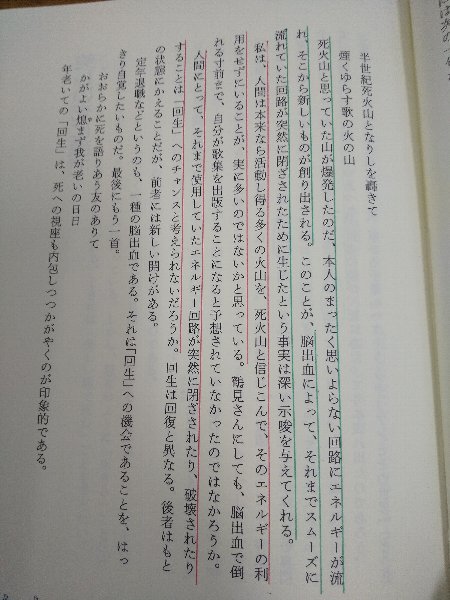 半世紀死火山となりしを轟きて
煙くゆらす歌の火の山
死火山と思っていた山が爆発したのだ、本人のまったく思いよらない回路にエネルギーが流
れ、そこから新しいものが創り出される。このことが、脳出血によって、それまでスムーズに
流れていた回路が突然に閉ざされたために生じたという事実は深い示唆を与えてくれる。
私は、人間は本来なら活動し得る多くの火山を、死火山と信じこんで、そのエネルギーの利
用をせずにいることが、実に多いのではないかと思っている。鶴見さんにしても、脳出血で倒
れる寸前まで、自分が歌集を出版することになると予想されていなかったのではなかろうか。
人間にとって、それまで使用していたエネルギー回路が突然に閉ざされたり、破壊されたり
することは「回生」へのチャンスと考えられないだろうか。回生は回復と異なる。後者はもと
の状態にかえることだが、前者には新しい開けがある。
定年退職などというのも、一種の脳出血である。それは「回生」への機会であることを、はっ
きり自覚したいものだ。最後にもう一首。
おおらかに死を語りあう友のありて
かがよい熄まず我が老いの日日
年老いての「回生」は、死への視座も内包しつつかがやくのが印象的である。